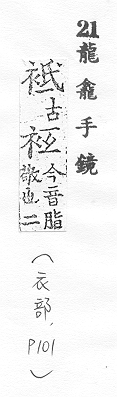 21 龍龕手鏡
袛古今音脂
敬也二
(衣部, P101)